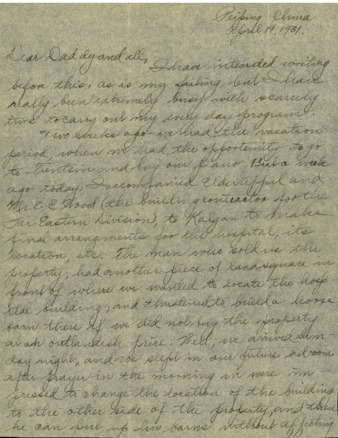 Peiping China
April 19, 1931.
Dear Daddy and all,
I have intended writing
before this, as is my failing, but I have
really been extremely busy with scarcely
time to carry out my daily program.
Two weeks ago we had the vacation
period when we had the opportunity to go
to Tientsin and buy our piano. But a week
ago today, I accompanied Elder and
Mr. E. C. Wood (the building contractor for the
Far Eastern Division), to Kalgan to make
final arrangements for the hospital, its
location, etc. The man who sold us the
property, had another piece of land square in
front of where we wanted to locate the hosp
ital building, and threatened to build a horse
barn there if we did not buy the property
at an outlandish price. Well, we arrived Sun
day night, and we slept in our future bedroom
after prayer in the morning we were im
pressed to change the location of the building
to the other side of the property, and then
he can put up his barns without affecting